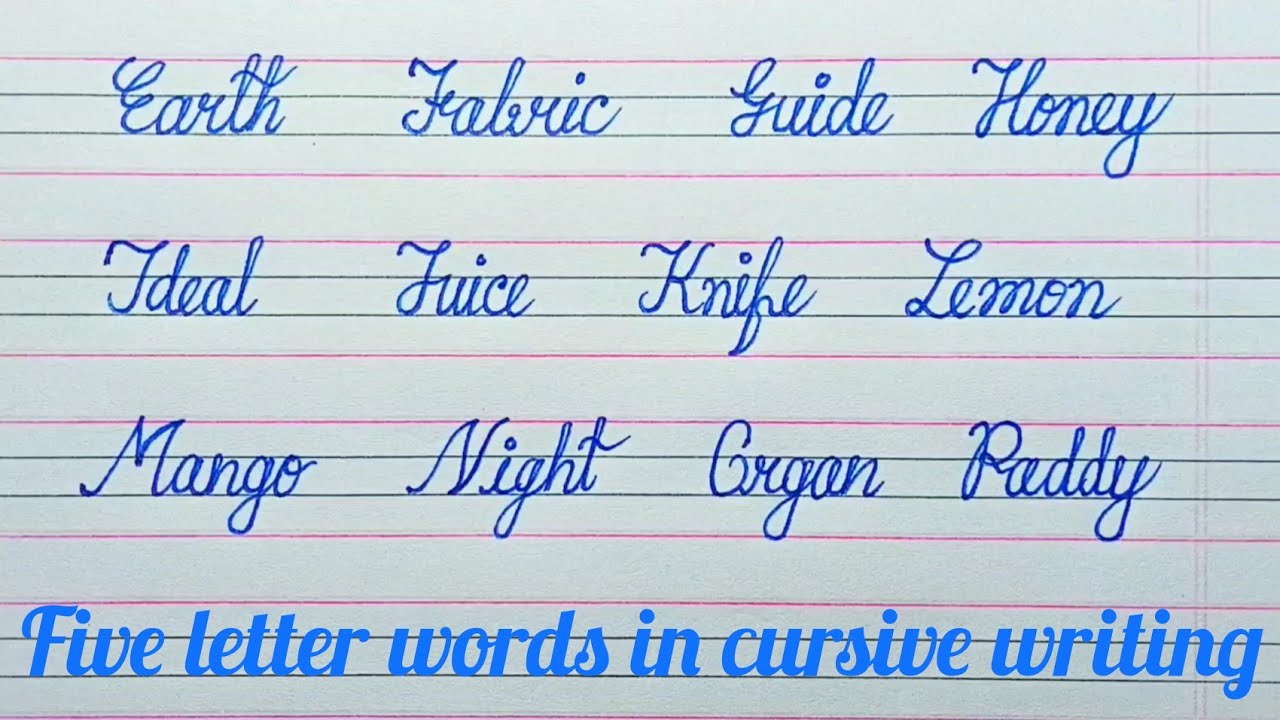 Earth Fabric Guide Honey
Ideal Juice Knife Lemon
Mango Night Organ Paddy
Five letter words in cursive writing